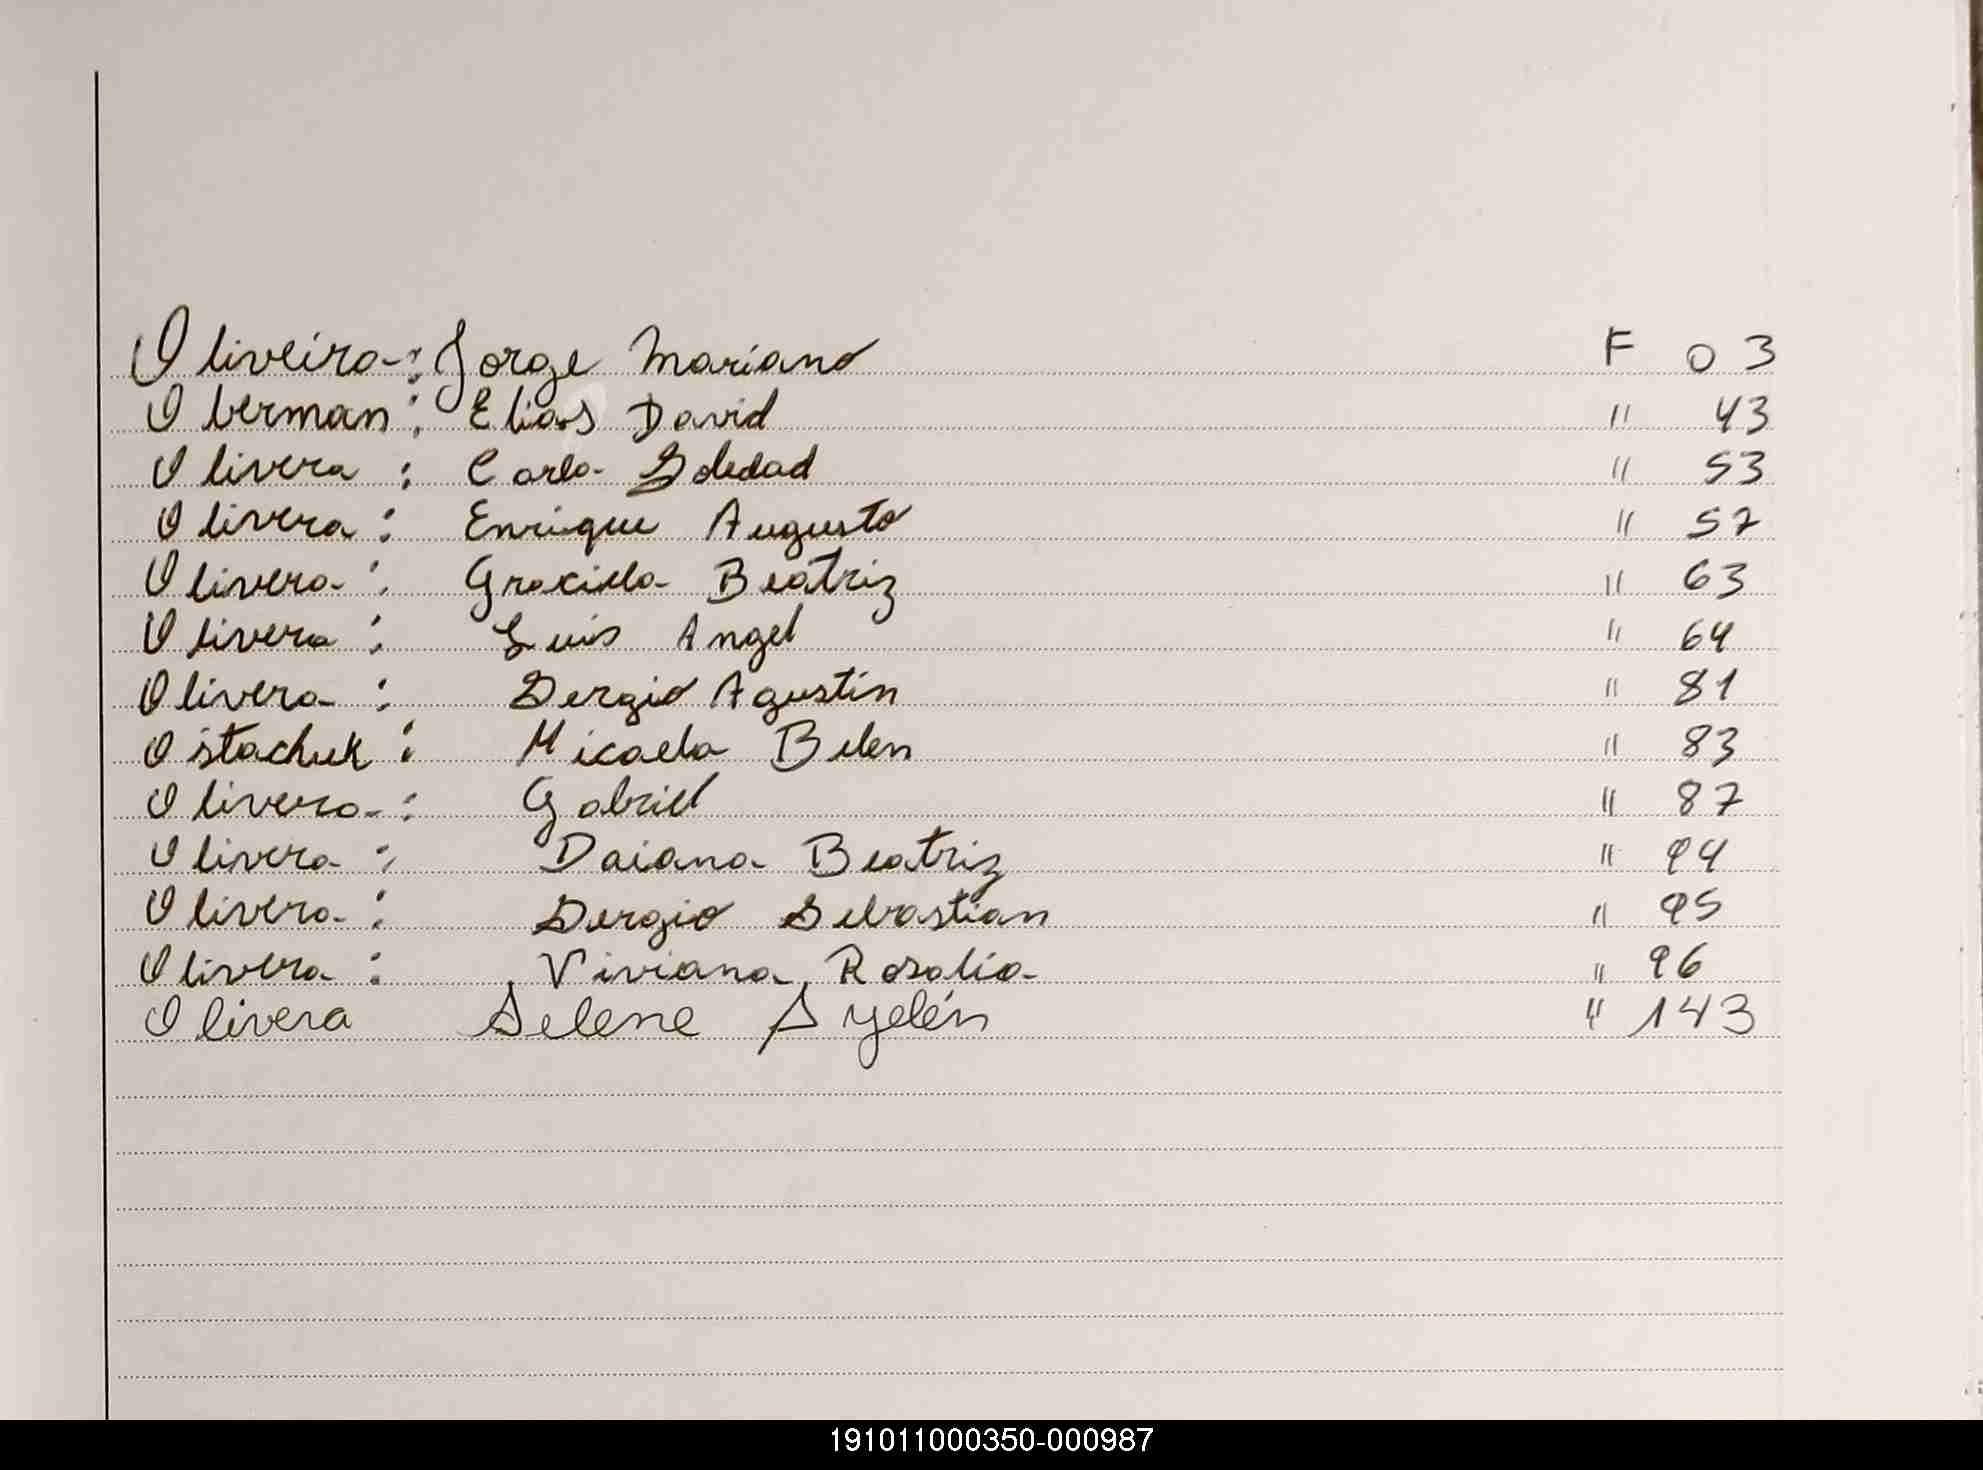 Oliveira: Jorge Mariano F 03
Oberman: Elias David " 43
Olivera: Carla Soledad " 53
Olivera: Enrique Augusto " 57
Olivera: Graciela Beatriz " 63
Olivera: Luis Angel " 64
Olivera: Sergio Agustin " 81
Ostachuk: Micaela Belen " 83
Olivera: Gabriel " 87
Olivera: Daiana Beatriz " 94
Olivera: Sergio Sebastian " 95
Olivera: Viviana Rosalia " 96
Olivera Selene Ayelén " 143
191011000350-000987